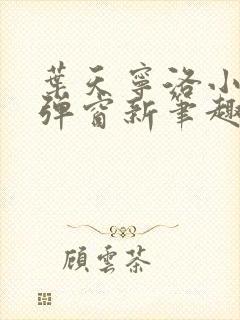 葉天寧洛小
彈窗新筆趣
顧雲茶